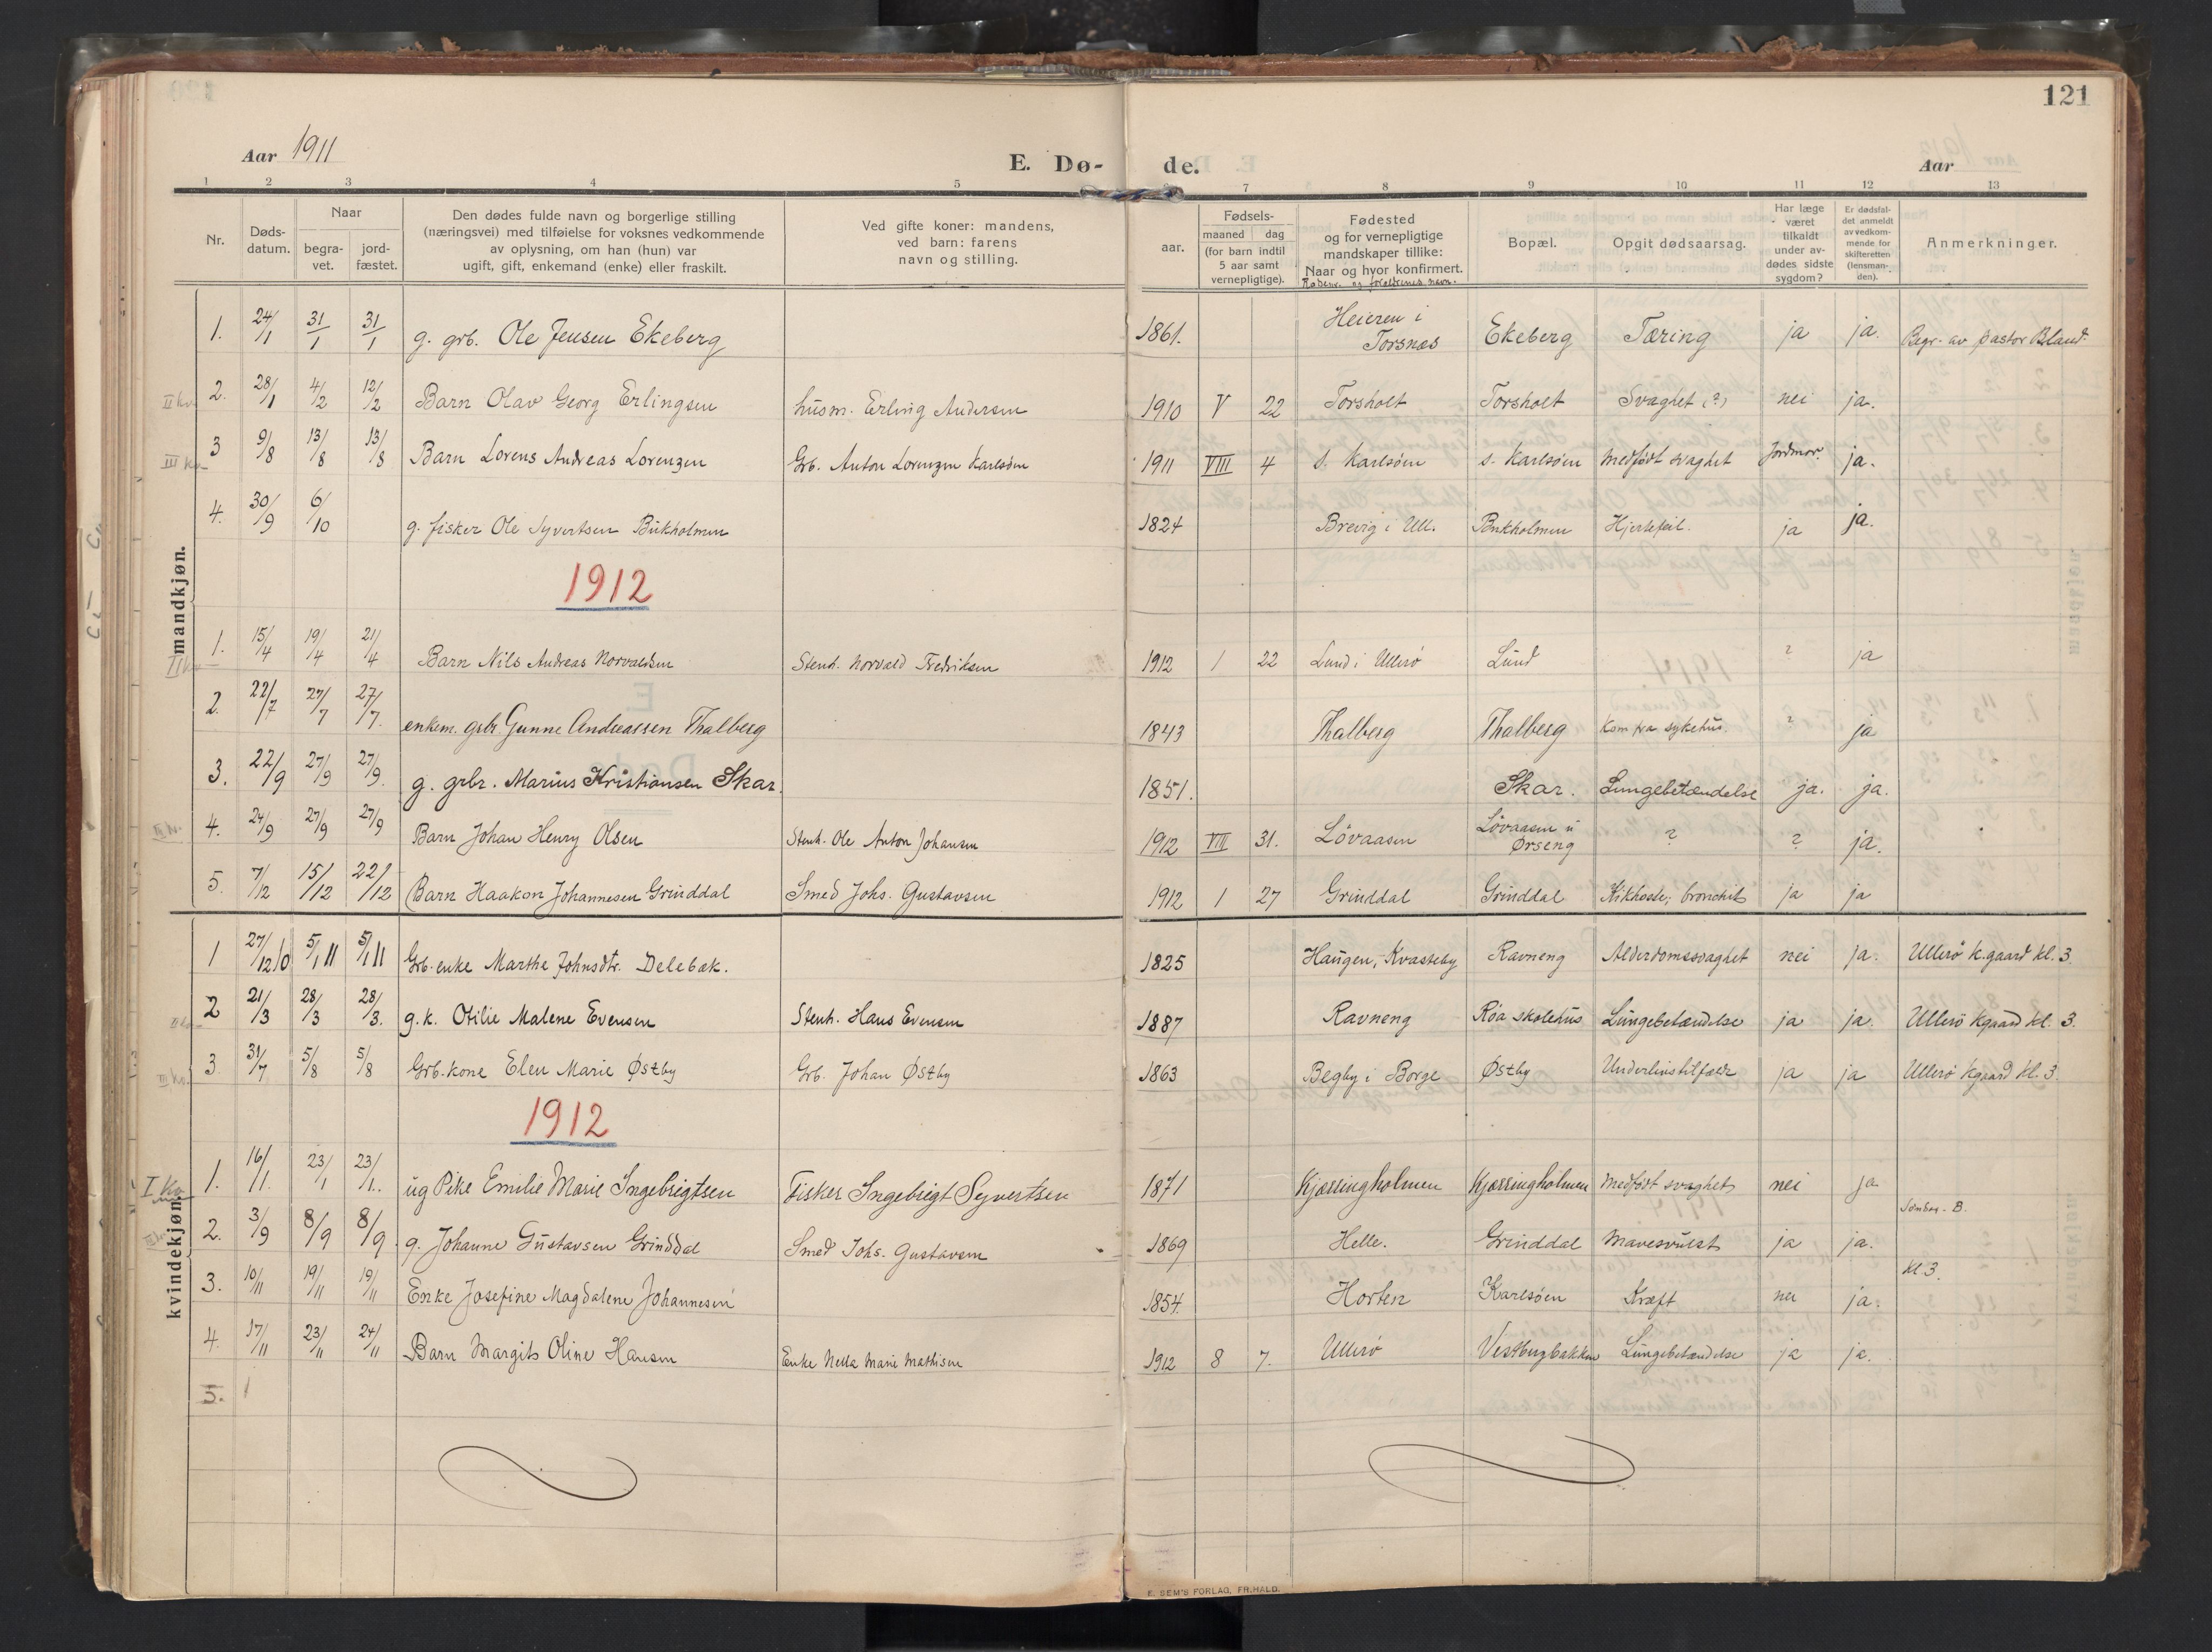 121
Aar 1911 E. Dø- de. Aar
1 2 3 4 5 7 8 9 10 11 12 13
Nr.
Døds-
datum.
Naar
begra-
vet.
jord-
fæstet.
Den dødes fulde navn og borgerlige stilling
(næringsvei) med tilføielse for voksnes vedkommende
av oplysning, om han (hun) var
ugift, gift, enkemand (enke) eller fraskilt.
Ved gifte koner: mandens,
ved barn: farens
navn og stilling.
aar.
Fødsels-
maaned dag
(for barn indtil
5 aar samt
vernepligtige).
Fødested
og for vernepligtige
mandskaper tillike:
Naar og hvor konfirmert.
Bopæl.
Opgit dødsaarsag.
Har læge
været
tilkaldt
under av-
dødes sidste
sygdom?
Er dødsfal-
det anmeldt
av vedkom-
mende for
skifteretten
(lensman-
den).
Anmerkninger.
mandkjøn.
1. 24/1 31/1 31/1 g. grb. Ole Jensen Ekeberg 1861. Heieren i Torsnæs Ekeberg Tæring ja ja. Begr. av pastor Bland.
2. 28/1 4/2 12/2 Barn Olav Georg Erlingsen husm. Erling Andersen 1910 V 22 Torsholt Torsholt Svaghet (?) nei ja.
3 9/8 13/8 13/8 Barn Lorens Andreas Lorenzen Grb. Anton Lorenzen Karlsöen 1911 VIII 4 s. Karlsöen s. Karlsöen Medfödt svaghet Jordmor. ja.
4. 30/9 6/10 g. fisker Ole Syvertsen Bukholmen 1824 Brevig i Ull. Bukholmen Hjertefeil. ja ja.
1912
1. 15/4 19/4 21/4 Barn Nils Andreas Norvaldsen Stenh. Norvald Fredriksen 1912 1 22 Lund i Ullerö Lund ? ja
2. 22/7 27/7 27/7. enkem. grbr Gunne Andreassen Thalberg 1843 Thalberg Thalberg Kom fra sykehus. ? ja
3. 22/9 27/9 27/9. g. grbr. Marius Kristiansen Skar. 1851. Skar. Lungebetændelse ja. ja.
4. 24/9 27/9 27/9 Barn Johan Henry Olsen Stenh. Ole Anton Johansen 1912 VII 31. Lövaasen Lövaasen u Ørseng ? ? ja.
5. 7/12 15/12 22/12 Barn Haakon Johannesen Grinddal Smed Johs. Gustavsen 1912 1 27 Grinddal Grinddal Kikhoste, bronchit ja ja
kvindekjøn.
1 27/12 10 5/1 11 5/1 11 Grb. enke Marthe Johnsdtr. Delebæk. 1825 Haugen, Kvasteby Ravneng Alderdomssvaghet nei ja. Ullerö k.gaard kl. 3.
2 21/3 28/3 28/3. g.k. Otilie Malene Evensen Stenh. Hans Evensen 1887 Ravneng Röa skolehus Lungebetændelse ja ja. Ullerö kgaard kl. 3.
3. 31/7 5/8 5/8 Grb. kone Elen Marie Østby Grb. Johan Østby 1863 Begby i Borge Østby Underlivstilfælde ja ja Ullerö kgaard kl. 3.
1912
I Kv. 1. 16/1. 23/1 23/1. ug Pike Emilie Marie Ingebrigtsen Fisker Ingebrigt Syvertsen 1871 Kjærringholmen Kjærringholmen Medfödt svaghet nei ja
2. 3/9 8/9 8/9 g. Johanne Gustavsen Grinddal Smed Johs. Gustavsen 1869 Helle. Grinddal Mavesvulst ja ja.
3. 10/11 19/11 19/11 Enke Josefine Magdalene Johannesen 1854. Horten Karlsöen Kræft nei ja. kl 3.
4. 17/11 23/11 24/11 Barn Margit Oline Hansen Enke Nella Marie Mathisen 1912 8 7. Ullerö Vestbygbakken Lungebetændelse ja ja.
5.
E. SEM'S FORLAG, FR.HALD.